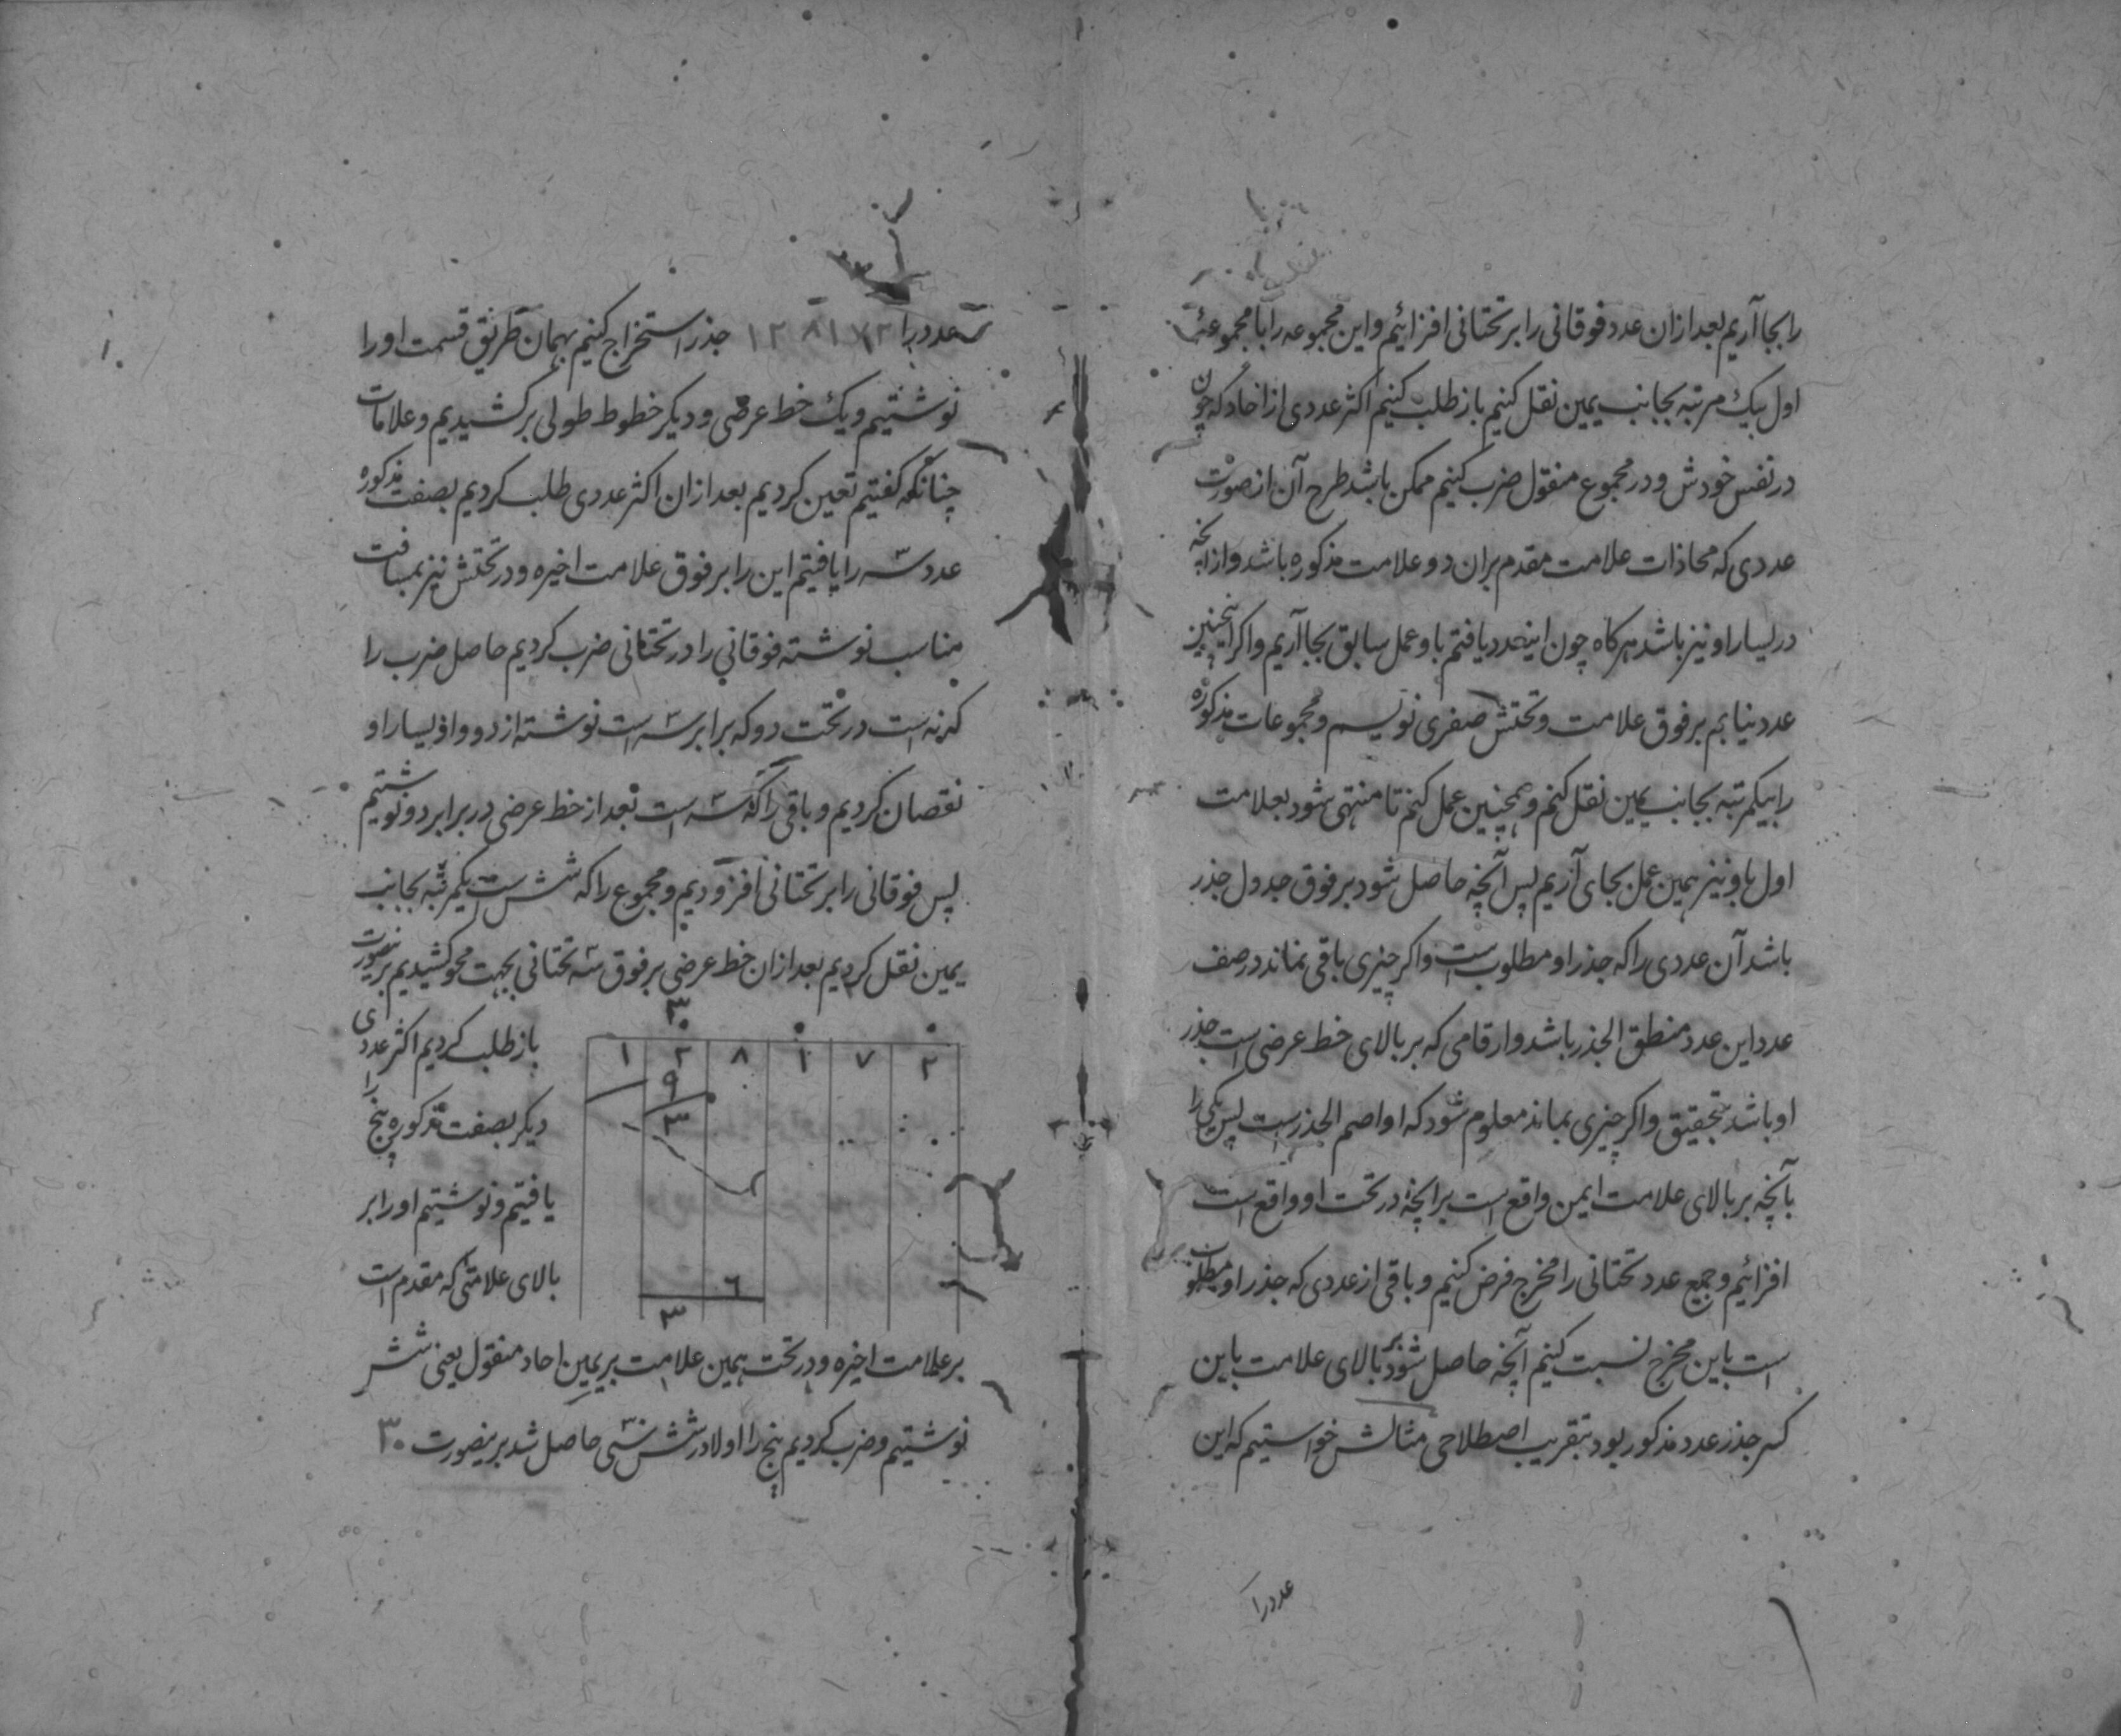 را بجا آریم بعد ازان عدد فوقانی را بر تحتانی افزائیم و این مجموعه را با مجموعهٔ
اول بیک مرتبه بجانب یمین نقل کنیم باز طلب کنیم اکثر عددی از احاد که چون
در نفس خودش و در مجموع منقول ضرب کنیم ممکن باشد طرح آن از صورت
عددی که محاذات علامت مقدم بران دو علامت مذکوره باشد و از انچه
در یسار او نیز باشد هرکاه چون اینعدد یافتم با و عمل سابق بجا آریم و اکر اینچنین
عدد نیابم بر فوق علامت و تحتش صفری نویسم و مجموعات مذکوره
را بیکمرتبه بجانب یمین نقل کنم و همچنین عمل کنم تا منتهی شود بعلامت
اول باو نیز همین عمل بجای آریم پس آنچه حاصل شود بر فوق جدول جذر
باشد آن عددی را که جذر او مطلوب ست و اکر چیزی باقی نماند در صف
عدد این عدد منطق الجذر باشد و ارقامی که بر بالای خط عرضی است جذر
او باشد بتحقیق و اکر چیزی بماند معلوم شود که او اصم الجذر است پس یکی را
بآنچه بر بالای علامت ایمن واقع است برانچه در تحت او واقع است
افزائیم و جمیع عدد تحتانی را مخرج فرض کنیم و باقی از عددی که جذر او مطلوب
است باین مخرج نسبت کنیم آنچه حاصل شود بر بالای علامت باین
کسر جذر عدد مذکور بود بتقریب اصطلاحی مثالش خواستیم که این
عدد را
عدد را ۱۲۸۱۷۲ جذر استخراج کنیم بهمان طریق قسمت او را
نوشتیم و یک خط عرضی و دیکر خطوط طولی بر کشیدیم و علامات
چنانکه کفتیم تعین کردیم بعد ازان اکثر عددی طلب کردیم بصفت مذکوره
عدد سه را یافتیم این را بر فوق علامت اخیره و در تحتش نیز بمسافت
مناسب نوشته فوقانی را در تحتانی ضرب کردیم حاصل ضرب را
که نه است در تحت دو که برابر سه است نوشته از دو و از یسار او
نقصان کردیم و باقی را که سه است بعد از خط عرضی در برابر دو نوشتیم
پس فوقانی را بر تحتانی افزودیم و مجموع را که شش ست یکمرتبه بجانب
یمین نقل کردیم بعد ازان خط عرضی بر فوق سه تحتانی بجهت محو کشیدیم برینصورت
۳
۱ ۲ ۸ ۱ ۷ ۲
۹
۳
۶
۳
باز طلب کردیم اکثر عددی
دیکر بصفت مذکوره پنج را
یافتیم و نوشتیم او را بر
بالای علامتی که مقدم است
بر علامت اخیره و در تحت همین علامت بر یمین احاد منقول یعنی شش
نوشتیم و ضرب کردیم پنج را اولا در شش سی حاصل شد برینصورت ۳۰